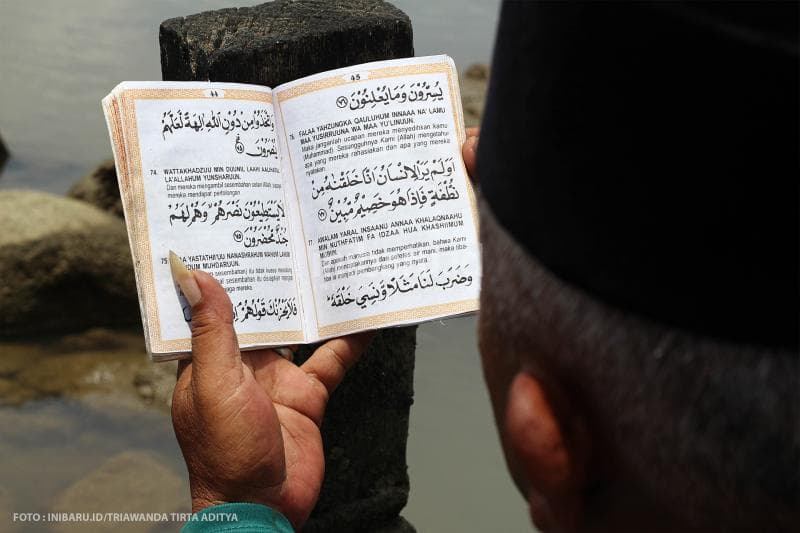 44
وَاتَّخَذُوْا مِنْ دُوْنِ اللّٰهِ اٰلِهَةً لَّعَلَّهُمْ
يُنْصَرُوْنَ
74. WATTAKHADZUU MIN DUUNIL LAAHI AALIHATAL
LA'ALLAHUM YUNSHARUUN.
Dan mereka mengambil sesembahan selain Allah, supaya
mereka mendapat pertolongan.
لَا يَسْتَطِيْعُوْنَ نَصْرَهُمْ وَهُمْ لَهُمْ
جُنْدٌ مُّحْضَرُوْنَ ٧٥
75 YASTATHII'UU NANASHRAHUM WAHUM LAHUM
DUM MUHDARUUN.
sesembahan) itu tidak kuasa
sesembahan itu disiapkan menjadi
mereka.
فَلَا يَحْزُنْكَ قَوْلُهُمْ
45
يُسِرُّوْنَ وَمَا يُعْلِنُوْنَ ٧٦
76. FALAA YAHZUNGKA QAULUHUM INNAAA NA' LAMU
MAA YUSIRRUUNA WA MAA YU'LINUUN.
Maka janganlah ucapan mereka menyedihkan kamu
(Muhammad). Sesungguhnya Kami (Allah) mengetahui
apa yang mereka rahasiakan dan apa yang mereka
nyatakan
اَوَلَمْ يَرَ الْاِنْسَانُ اَنَّا خَلَقْنٰهُ مِنْ
نُّطْفَةٍ فَاِذَا هُوَ خَصِيْمٌ مُّبِيْنٌ ٧٧
77. AWALAM YARAL INSAANU ANNAA KHALAQNAAHU
MIN NUTHFATIM FA IDZAA HUA KHASHIIMUM
MUBIIN.
Dan apakah manusia tidak memperhatikan, bahwa Kami
(Allah) menciptakannya dari setetes air mani, maka tiba-
tiba ia menjadi pembangkang yang nyata.
وَضَرَبَ لَنَا مَثَلًا وَّنَسِيَ خَلْقَهٗ
FOTO : INIBARU.ID/TRIAWANDA TIRTA ADITYA